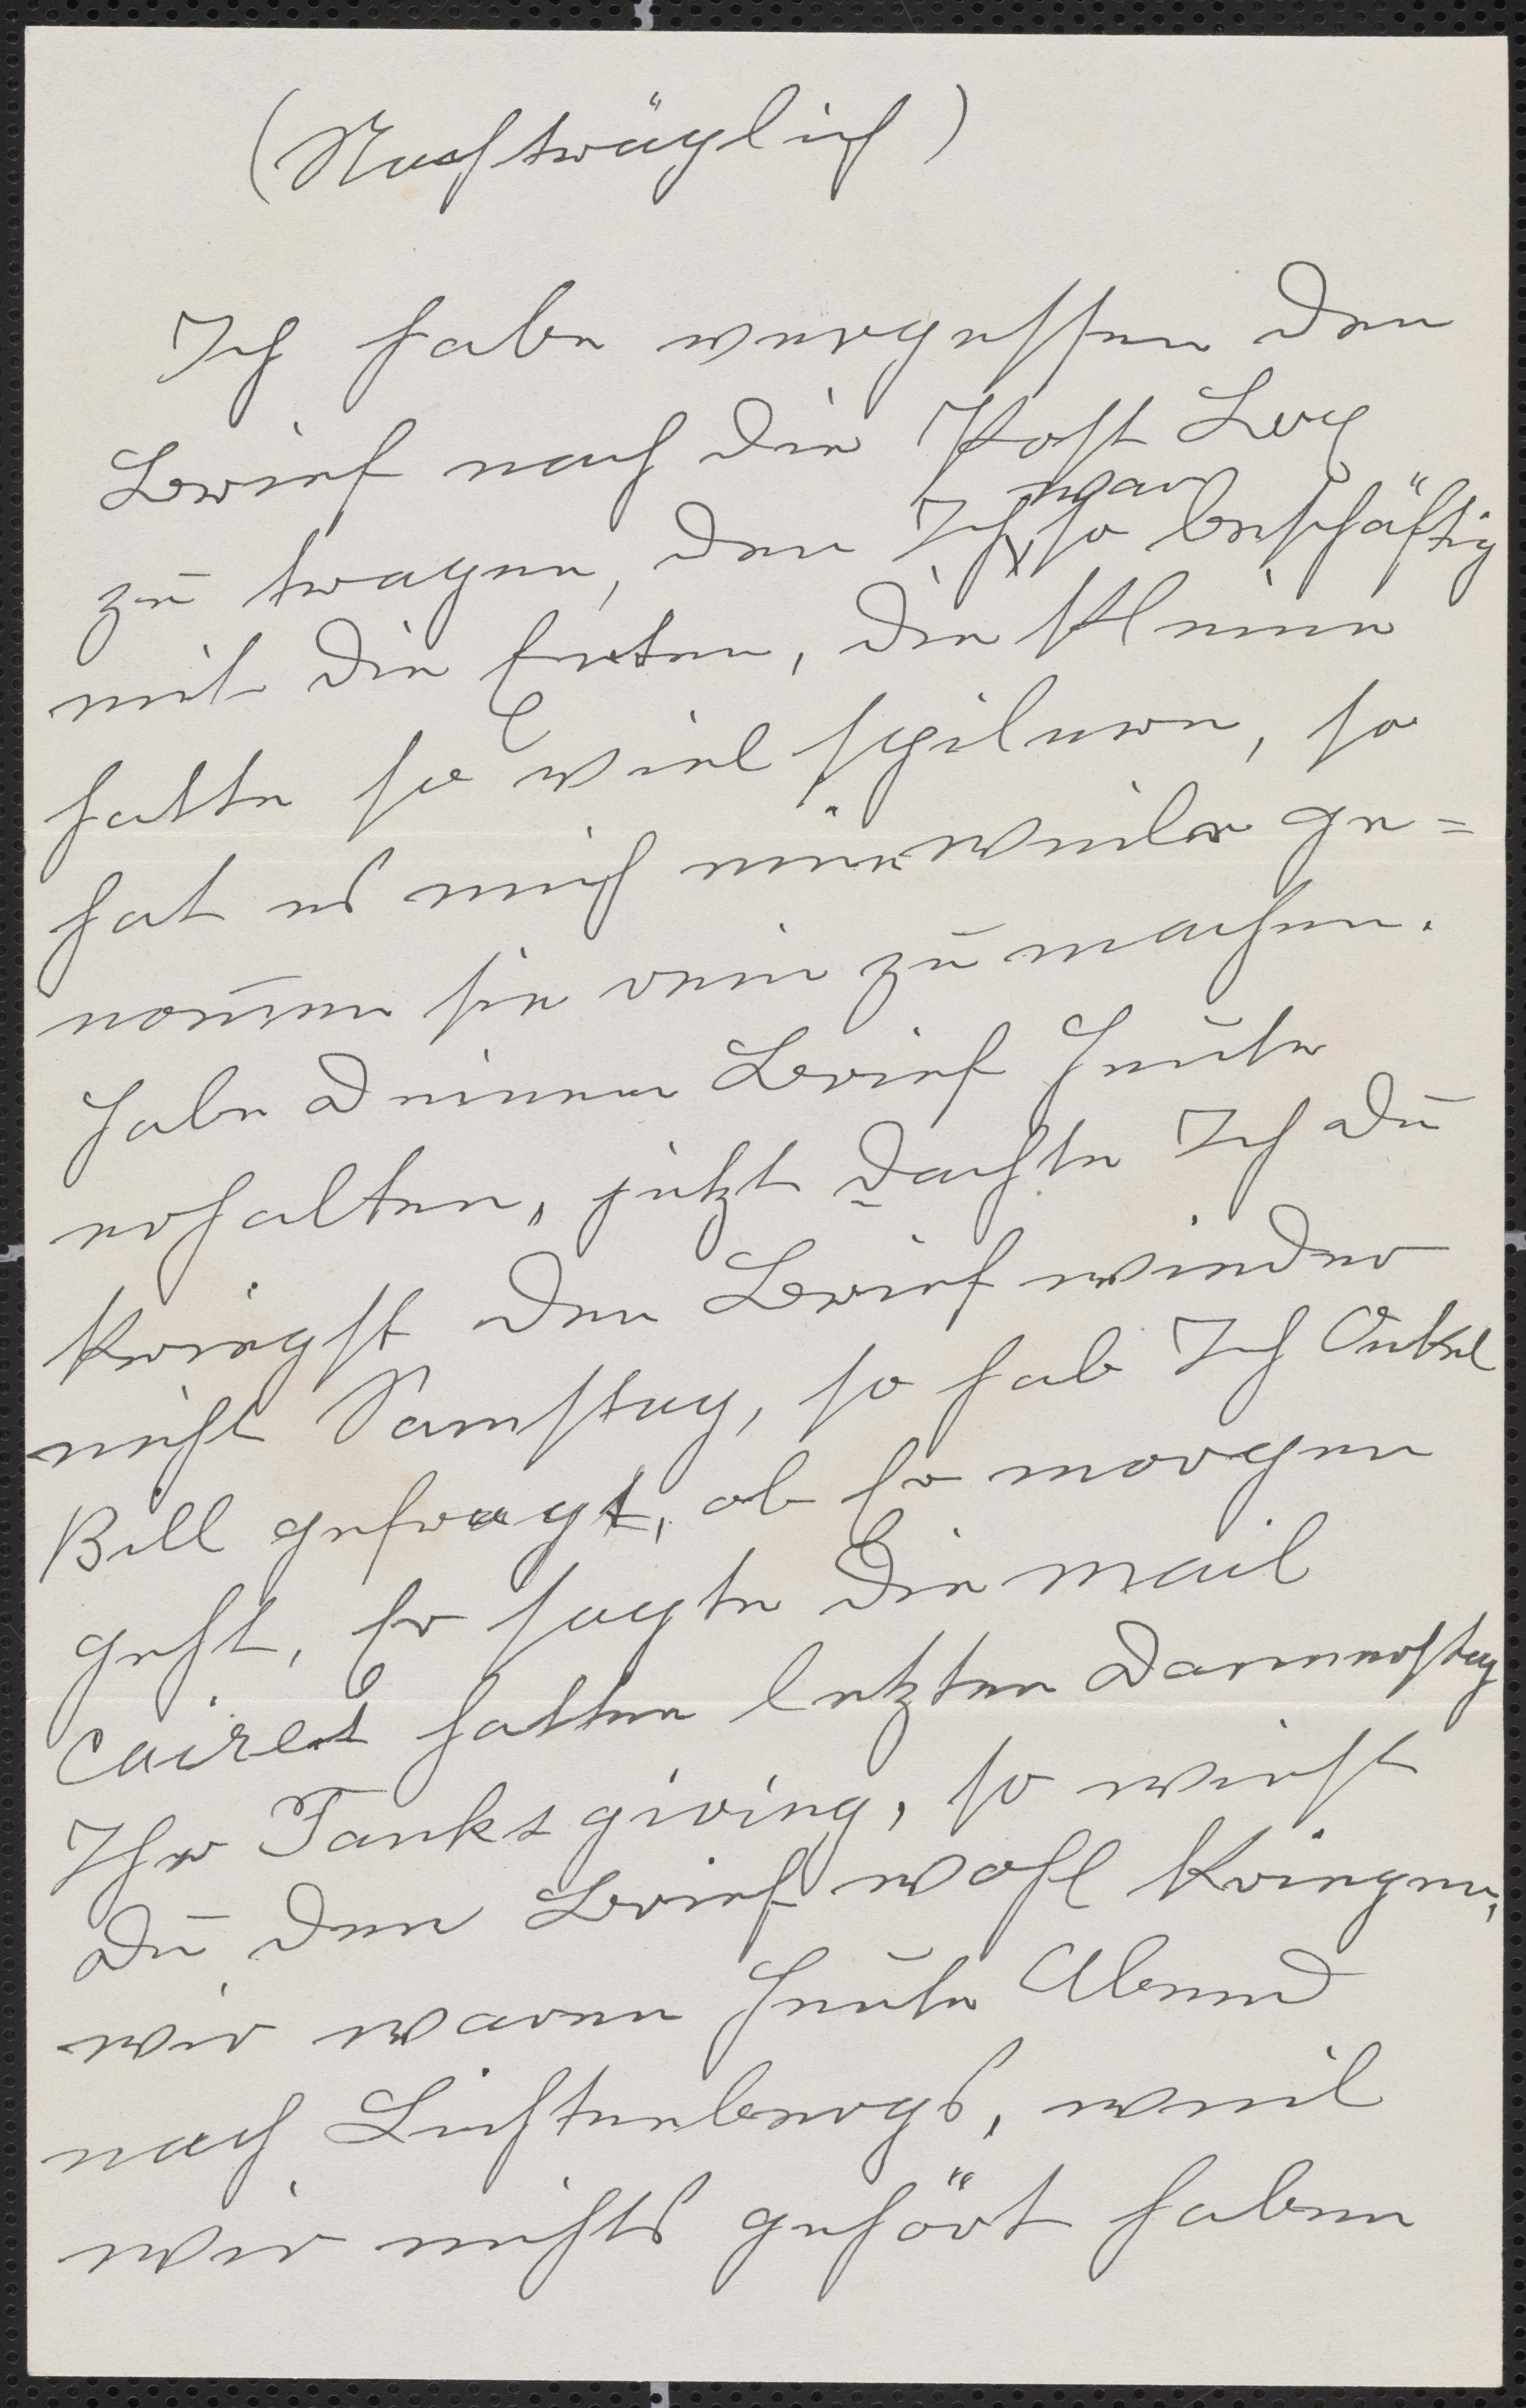 (Nachträglich)
Ich habe vergessen den
Brief nach die Post Box
zu tragen, den Ich war so beschäftig
mit die Enten, die Kleine
hatte so viel spiluren, so
hat es mich eine weile ge=
nommen sie rein zu machen.
Habe Deinen Brief Heute
erhalten, jetzt dachte Ich Du
kriegst den Brief wieder
nicht Samstag, so hab Ich Onkel
Bill gefragt, ob Er morgen
geht, Er sagte die mail
cairet hatten letzten Donnerstag
Ihr Tanksgiving, so wirst
Du den Brief wohl kriegen,
wir waren Heute Abend
nach Lichtenbergs, weil
wir nichts gehört haben